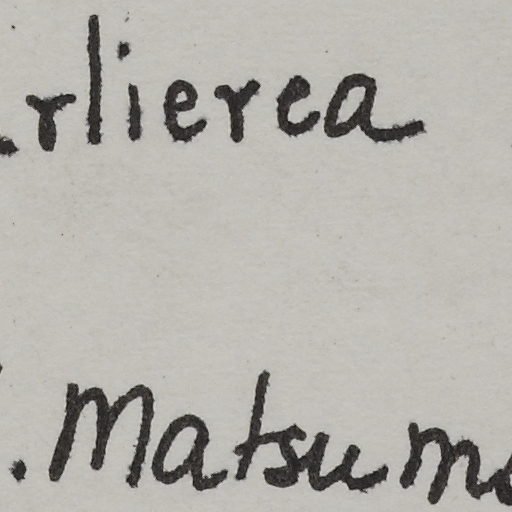 rlierea
. Matsumo